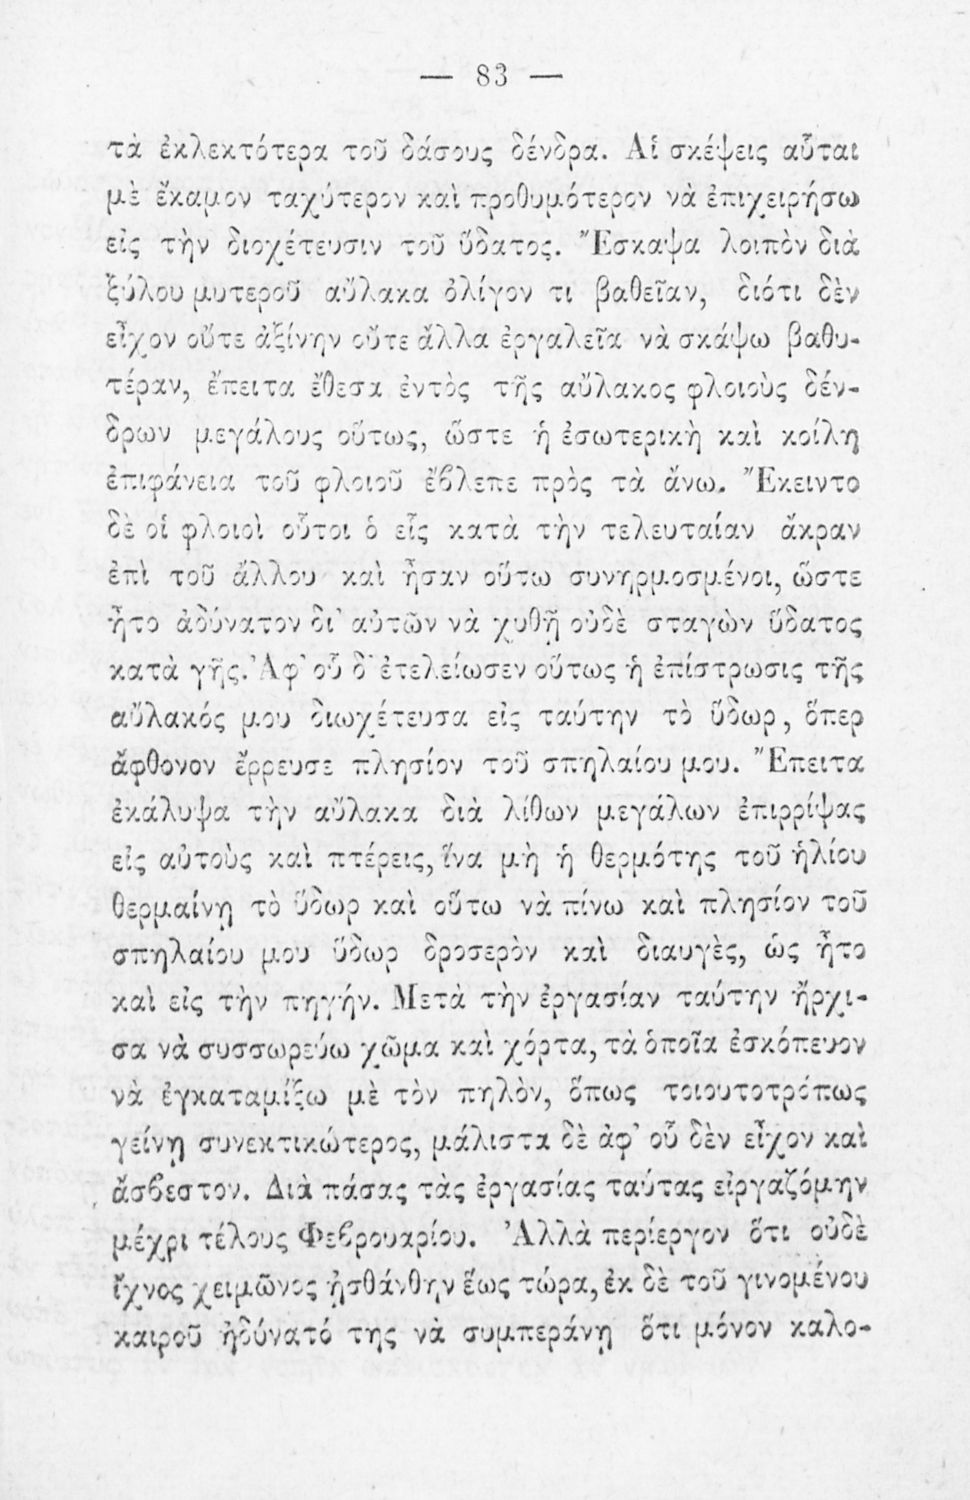 — 83 —
τὰ ἐκλεκτότερα τοῦ δάσους δένδρα. Αἱ σκέψεις αὗται
μὲ ἔκαμον ταχύτερον καὶ προθυμότερον νὰ ἐπιχειρήσω
εἰς τὴν διοχέτευσιν τοῦ ὕδατος. Ἔσκαψα λοιπὸν διὰ
ξύλου μυτεροῦ αὔλακα ὀλίγον τι βαθεῖαν, διότι δὲν
εἶχον οὔτε ἀξίνην οὔτε ἄλλα ἐργαλεῖα νὰ σκάψω βαθυ-
τέραν, ἔπειτα ἔθεσα ἐντὸς τῆς αὔλακος φλοιοὺς δέν-
δρων μεγάλους οὕτως, ὥστε ἡ ἐσωτερικὴ καὶ κοίλη
ἐπιφάνεια τοῦ φλοιοῦ ἔβλεπε πρὸς τὰ ἄνω. Ἔκειντο
δὲ οἱ φλοιοὶ οὗτοι ὁ εἷς κατὰ τὴν τελευταίαν ἄκραν
ἐπὶ τοῦ ἄλλου καὶ ἦσαν οὕτω συνηρμοσμένοι, ὥστε
ἦτο ἀδύνατον δι᾿ αὐτῶν νὰ χυθῇ οὐδὲ σταγὼν ὕδατος
κατὰ γῆς. Ἀφ᾿ οὗ δ᾿ ἐτελείωσεν οὕτως ἡ ἐπίστρωσις τῆς
αὔλακός μου διωχέτευσα εἰς ταύτην τὸ ὕδωρ, ὅπερ
ἄφθονον ἔρρευσε πλησίον τοῦ σπηλαίου μου. Ἔπειτα
ἐκάλυψα τὴν αὔλακα διὰ λίθων μεγάλων ἐπιρρίψας
εἰς αὐτοὺς καὶ πτέρεις, ἵνα μὴ ἡ θερμότης τοῦ ἡλίου
θερμαίνῃ τὸ ὕδωρ καὶ οὕτω νὰ πίνω καὶ πλησίον τοῦ
σπηλαίου μου ὕδωρ δροσερὸν καὶ διαυγὲς, ὡς ἦτο
καὶ εἰς τὴν πηγήν. Μετὰ τὴν ἐργασίαν ταύτην ἤρχι-
σα νὰ συσσωρεύω χῶμα καὶ χόρτα, τὰ ὁποῖα ἐσκόπευον
νὰ ἐγκαταμίξω μὲ τὸν πηλὸν, ὅπως τοιουτοτρόπως
γείνῃ συνεκτικώτερος, μάλιστα δὲ ἀφ᾿ οὗ δὲν εἶχον καὶ
ἄσβεστον. Διὰ πάσας τὰς ἐργασίας ταύτας εἰργαζόμην
μέχρι τέλους Φεβρουαρίου. Ἀλλὰ περίεργον ὅτι οὐδὲ
ἴχνος χειμῶνος ᾐσθάνθην ἕως τώρα, ἐκ δὲ τοῦ γινομένου
καιροῦ ἠδύνατό της νὰ συμπεράνῃ ὅτι μόνον καλο-